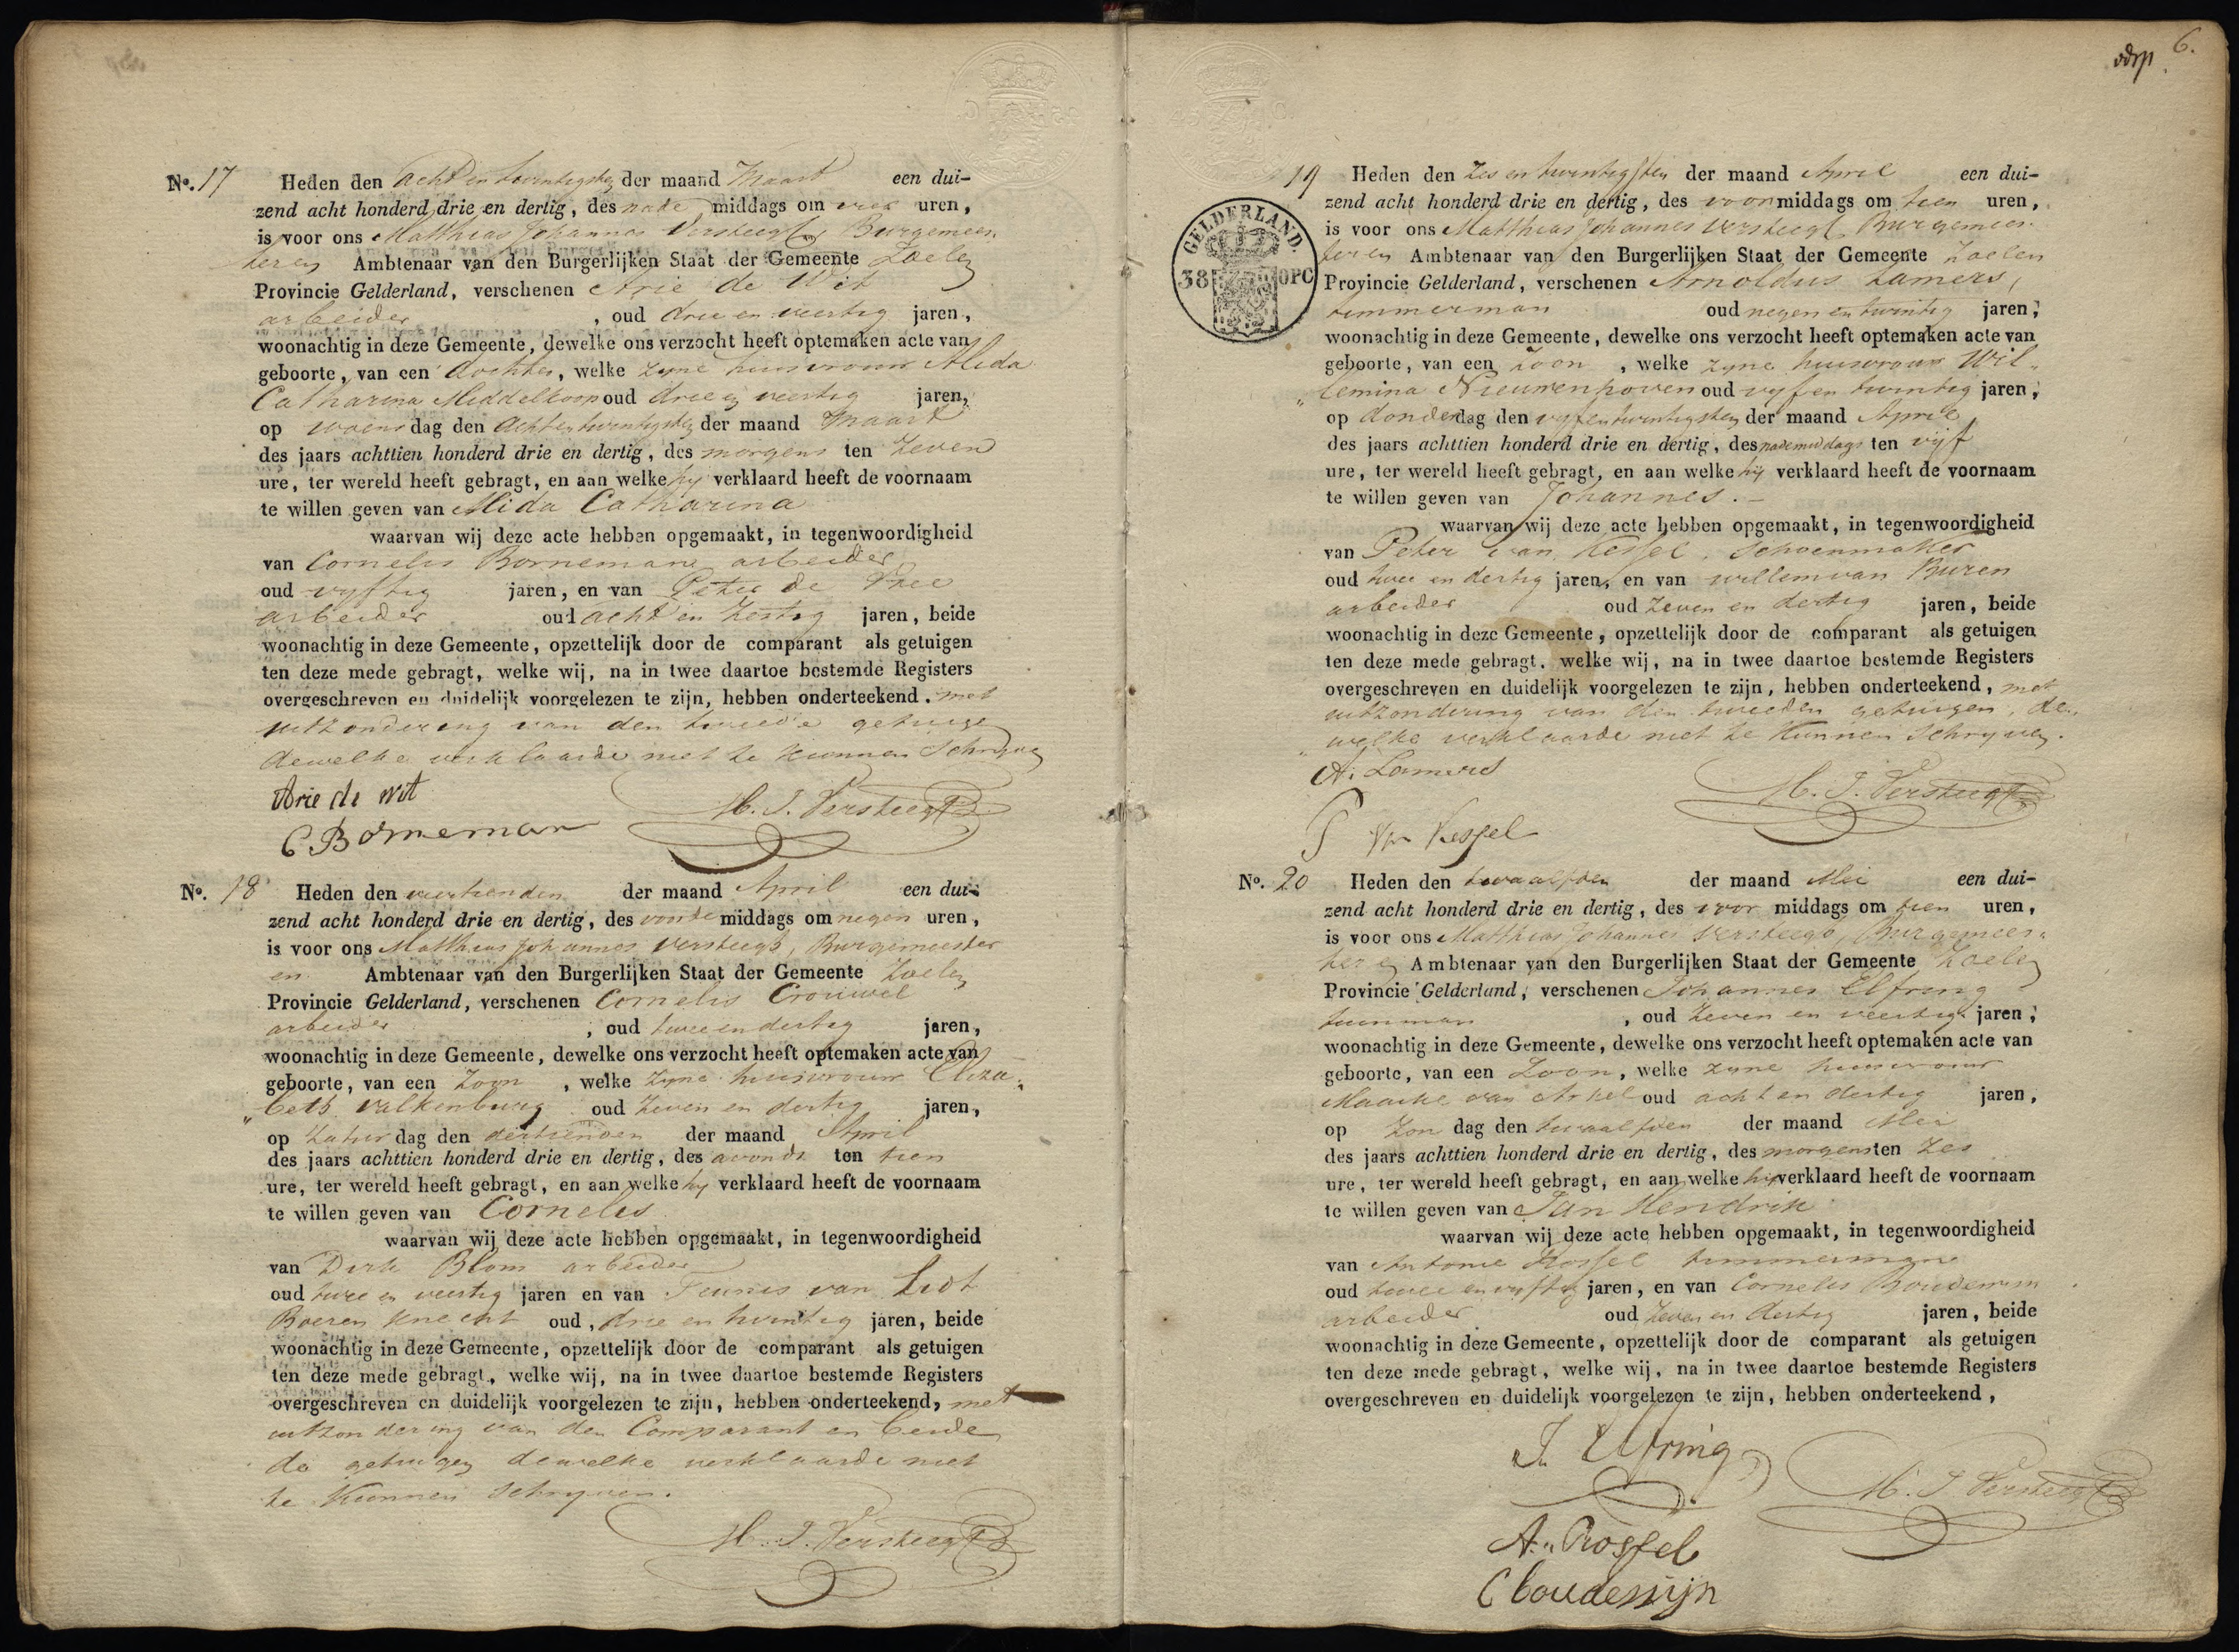 No. 17 Heden den Acht en twintigsten der maand Maart een dui-
zend acht honderd drie en dertig, des nade middags om vier uren,
is voor ons Matthias Johannes Versteegh, Burgemees
ter en Ambtenaar van den Burgerlijken Staat der Gemeente Zoelen
Provincie Gelderland, verschenen Arie de Wit
arbeider, oud drie en veertig jaren,
woonachtig in deze Gemeente, dewelke ons verzocht heeft optemaken acte van
geboorte, van een dochter, welke zyne huisvrouw Alida
Catharina Middelkoop oud drie en veertig jaren,
op woensdag den Acht en twintigsten der maand Maart
des jaars achttien honderd drie en dertig, des morgens ten zeven
ure, ter wereld heeft gebragt, en aan welke hy verklaard heeft de voornaam
te willen geven van Alida Catharina
waarvan wij deze acte hebben opgemaakt, in tegenwoordigheid
van Cornelis Bornemann arbeider
oud vyftig jaren, en van Peter de
arbeider oud acht en zestig jaren, beide
woonachtig in deze Gemeente, opzettelijk door de comparant als getuigen
ten deze mede gebragt, welke wij, na in twee daartoe bestemde Registers
overgeschreven en duidelijk voorgelezen te zijn, hebben onderteekend. met
uitzondering van den tweede getuige
dewelke verklaarde niet te kunnen Schryven
Arie de Wit
M. J. Versteegh
C Borneman
No. 18 Heden den veertienden der maand April een dui-
zend acht honderd drie en dertig, des voorde middags om negen uren,
is voor ons Matthias Johannes Versteegh, Burgemeester
en Ambtenaar van den Burgerlijken Staat der Gemeente Zoelen
Provincie Gelderland, verschenen Cornelis Crouwel
arbeider, oud twee en dertig jaren,
woonachtig in deze Gemeente, dewelke ons verzocht heeft optemaken acte van
geboorte, van een Zoon, welke zyne huisvrouw Eliza„
„beth Valkenburg oud zeven en dertig jaren,
op Zaturdag den dertienden der maand April
des jaars achttien honderd drie en dertig, des avonds ten tien
ure, ter wereld heeft gebragt, en aan welke hy verklaard heeft de voornaam
te willen geven van Cornelis
waarvan wij deze acte hebben opgemaakt, in tegenwoordigheid
van Dirk Blom arbeider
oud twee en veertig jaren en van Teunis van Lidt
Boeren knecht oud, drie en twintig jaren, beide
woonachtig in deze Gemeente, opzettelijk door de comparant als getuigen
ten deze mede gebragt, welke wij, na in twee daartoe bestemde Registers
overgeschreven en duidelijk voorgelezen te zijn, hebben onderteekend, met
uitzondering van den Comparant en beide
de getuigen dewelke verklaarde niet
te kunnen Schryven.
M. J. Versteegh
6.
GELDERLAND.
38 OPC
19 Heden den Zes en twintigsten der maand April een dui-
zend acht honderd drie en dertig, des voor middags om tien uren,
is voor ons Matthias Johannes Versteegh Burgemees-
ter en Ambtenaar van den Burgerlijken Staat der Gemeente Zoelen
Provincie Gelderland, verschenen Arnoldus Lamers,
timmerman oud negen en twintig jaren,
woonachtig in deze Gemeente, dewelke ons verzocht heeft optemaken acte van
geboorte, van een Zoon, welke zyne huisvrouw Wil„
„lemina Nieuwenhoven oud vyf en twintig jaren,
op donderdag den vyfentwintigsten der maand April
des jaars achttien honderd drie en dertig, des nademiddags ten vijf
ure, ter wereld heeft gebragt, en aan welke hij verklaard heeft de voornaam
te willen geven van Johannes.
waarvan wij deze acte hebben opgemaakt, in tegenwoordigheid
van Peter van Kessel, Schoenmaker
oud twee en dertig jaren, en van willem van Buren
arbeider oud Zeven en dertig jaren, beide
woonachtig in deze Gemeente, opzettelijk door de comparant als getuigen
ten deze mede gebragt, welke wij, na in twee daartoe bestemde Registers
overgeschreven en duidelijk voorgelezen te zijn, hebben onderteekend, met
uitzondering van den tweeden getuigen, de„
„welke verklaarde niet te kunnen Schryven.
A: Lamers
M. J. Versteegh
P Vn Kessel
No. 20 Heden den twaalfden der maand Mei een dui-
zend acht honderd drie en dertig, des voor middags om tien uren,
is voor ons Matthias Johannes Versteegh, Burgemees„
ter en Ambtenaar van den Burgerlijken Staat der Gemeente Zoelen
Provincie Gelderland, verschenen Johannes Elfring
tuinman, oud Zeven en veertig jaren,
woonachtig in deze Gemeente, dewelke ons verzocht heeft optemaken acte van
geboorte, van een Zoon, welke zyne huisvrouw
Maaike van Arkel oud acht en dertig jaren,
op Zon dag den twaalfden der maand Mei
des jaars achttien honderd drie en dertig, des morgens ten Zes
ure, ter wereld heeft gebragt, en aan welke hy verklaard heeft de voornaam
te willen geven van Jan Hendrik
waarvan wij deze acte hebben opgemaakt, in tegenwoordigheid
van Antonie Rossel timmerman
oud twee en vyftig jaren, en van Cornelis Boudewyn
arbeider oud Zeven en dertig jaren, beide
woonachtig in deze Gemeente, opzettelijk door de comparant als getuigen
ten deze mede gebragt, welke wij, na in twee daartoe bestemde Registers
overgeschreven en duidelijk voorgelezen te zijn, hebben onderteekend,
J. Elfring
M. J. Versteegh
A. Rossel
C boudewijn